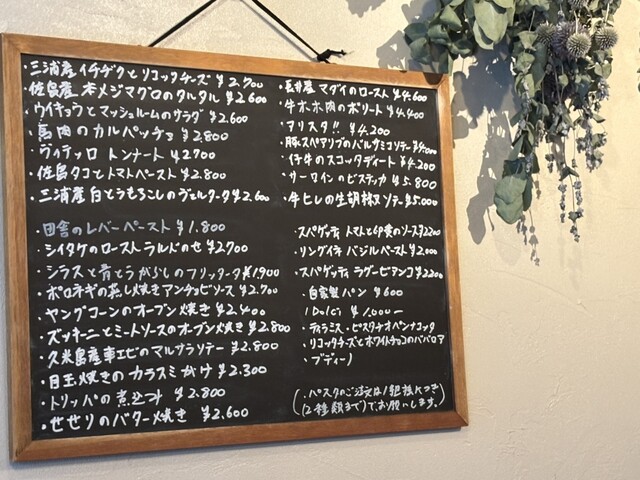 ・三浦産イチヂクとリコッタチーズ ¥2.700
・佐島産 本メジマグロのタルタル ¥2.600
・ウイキョウとマッシュルームのサラダ ¥2.600
・馬肉のカルパッチョ ¥2.800
・ヴィテッロ トンナート ¥2700
・佐島タコとトマトペースト ¥2.800
・三浦産白とうもろこしのヴェルタータ ¥2.600
・田舎のレバーペースト ¥1.800
・シイタケのロースト ラルドのせ ¥2700
・シラスと青とうがらしのフリッタータ ¥1,900
・ポロネギの蒸し焼きアンチョビソース ¥2.700
・ヤングコーンのオーブン焼き ¥2.400
・ズッキーニとミートソースのオーブン焼き ¥2.800
・久米島産車エビのマルサラソテー ¥2.800
・目玉焼きのカラスミがけ ¥2.300
・トリッパの煮込み ¥2.800
・せせりのバター焼き ¥2.600
・長井産 マダイのロースト ¥4.600
・牛ホホ肉のボリート ¥4.400
・アリスタ!! ¥4.200
・豚スペアリブのバルサミコソテー ¥4000
・仔牛のスコッタディート ¥4.200
・サーロインのビステッカ ¥5.800
・牛ヒレの生胡椒ソテー ¥5.000
・スパゲッティ トマトと卵黄のソース ¥2200
・リングイネ バジルペースト ¥2.000
・スパゲッティ ラグービアンコ ¥2200
・自家製パン ¥600
(Dolci) ¥1,000ー
・ティラミス・ピスタチオパンナコッタ
・リコッタチーズとホワイトチョコのババロア
・ブディーノ
(・パスタのご注文は1組様につき)
(2種類まで)でお願いします。